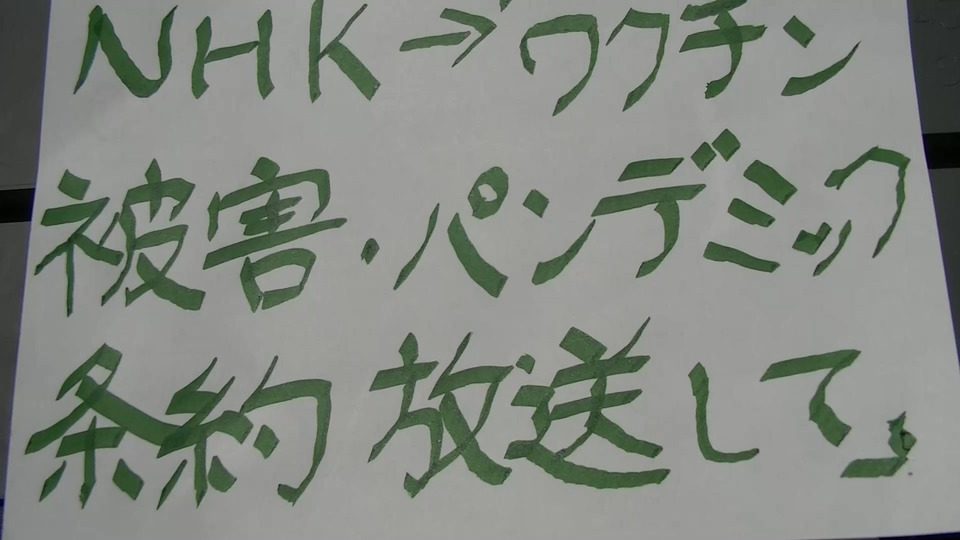 NHK→ワクチン
被害・パンデミック
条約放送して